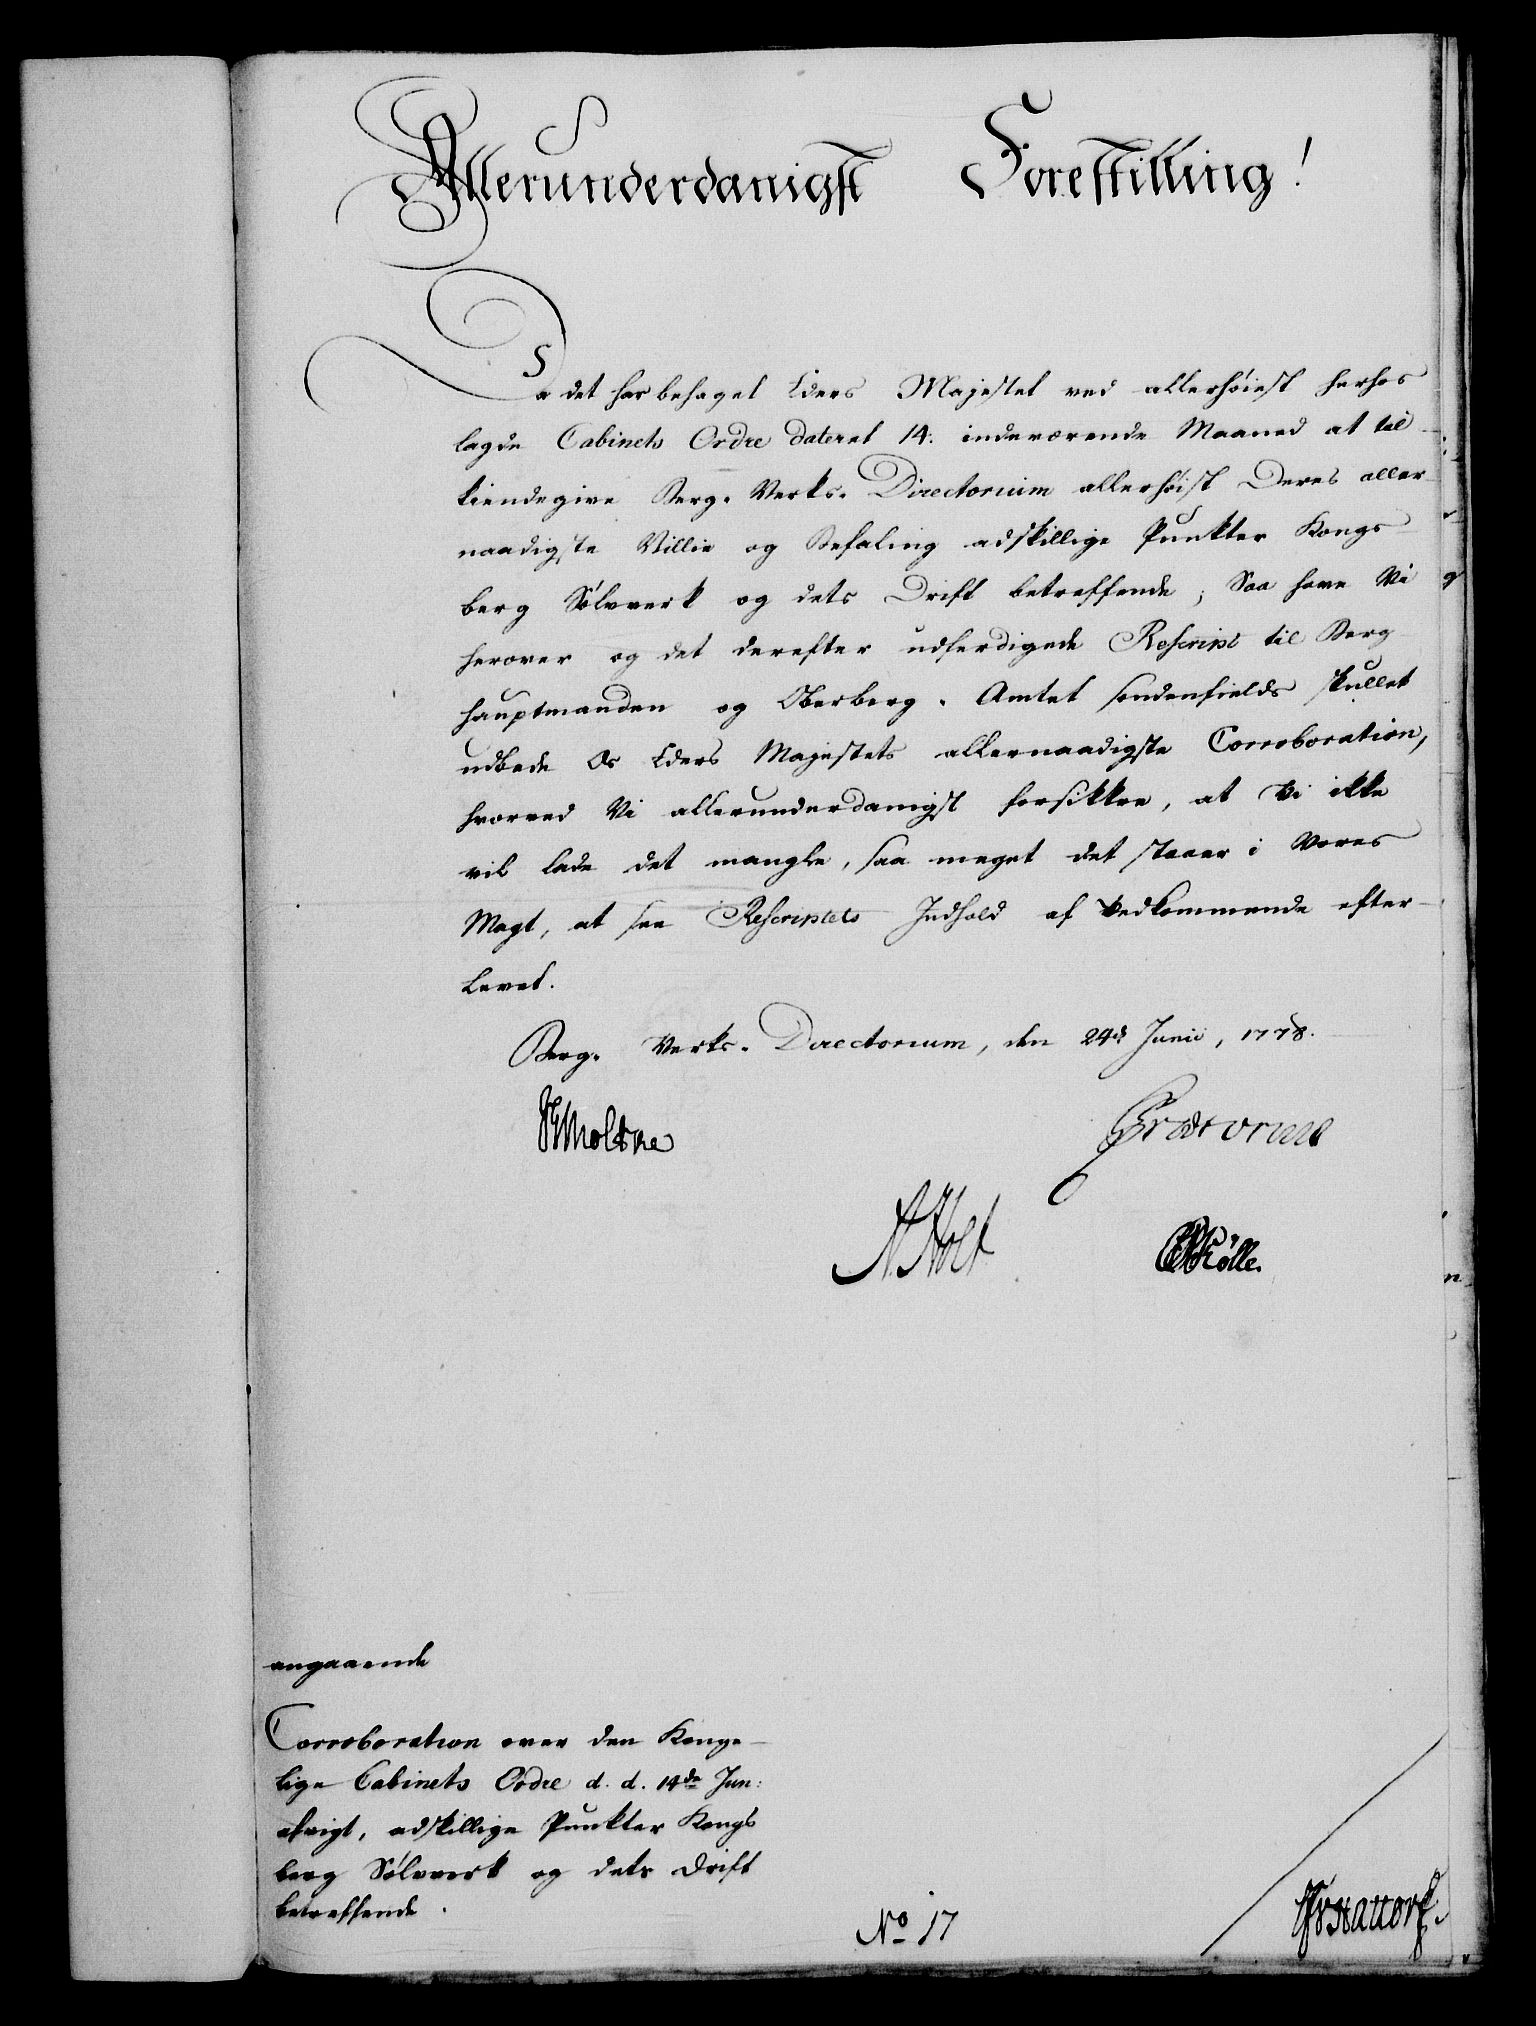 Allerunderdanigst Forestilling!
Da det har behaget Eders Majestet ved allerhøiest herhos
lagde Cabinets Ordre dateret 14. indeværende Maaned at til-
kiendegive Berg-Verks-Directorium allerhøist Deres aller-
naadigste Villie og Befaling adskillige Punkter Kongs-
berg Sølvverk og dets Drift betreffende; Saa have Vi
herover og det derefter udferdigede Rescript til Berg-
hauptmanden og Oberberg-Amtet søndenfields skullet
udbede Os Eders Majestets allernaadigste Corroboration,
hvorved Vi allerunderdanigst forsikkre, at Vi ikke
vil lade det mangle, saa meget det staaer i Vores
Magt, at see Rescriptets Indhold af Vedkommende efter-
levet.
Berg-Verks-Directorium, den 24d Junii, 1778.
Moltke
Prætorius
A. Holt
Kølle.
angaaende
Corroboration over den Konge-
lige Cabinets Ordre d. d. 14de Jun:
afvigt, adskillige Punkter Kongs
berg Sølvverk og dets Drift
betreffende.
No 17
Hattorf.